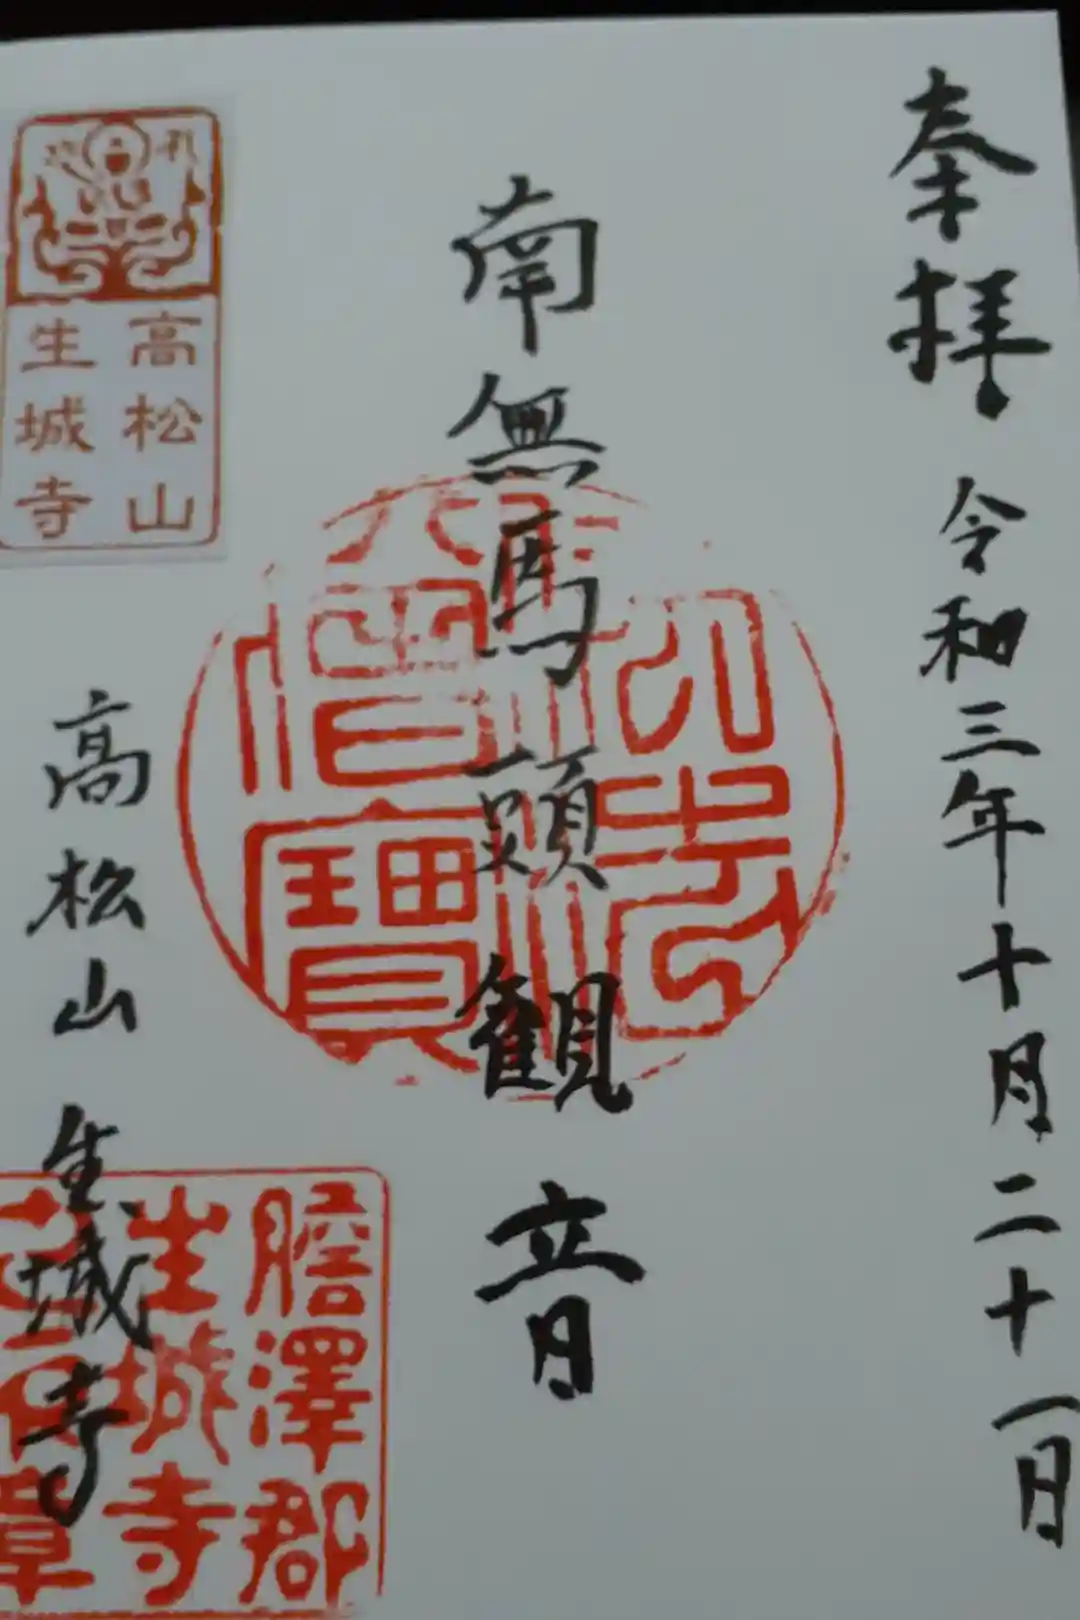 奉拝 令和三年十月二十一日
南無馬頭観音
高松山 生城寺
高松山
生城寺
膽澤郡
生城寺